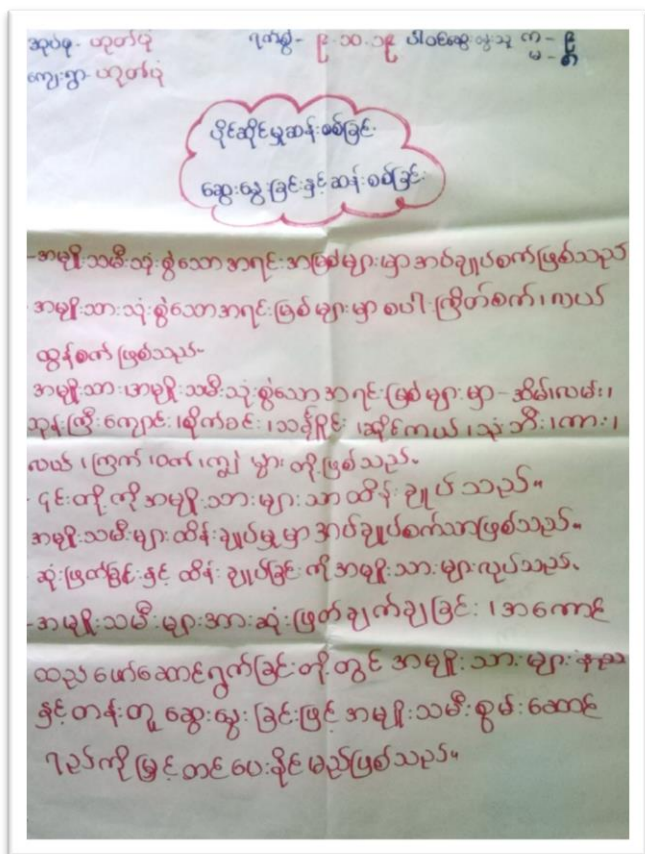 အုပ်စု - ဟုတ်ပုံ ရက်စွဲ - ၉.၁၁.၁၉ ပါဝင်ဆွေးနွေးသူ ကျ - ၉
ကျေးရွာ - ဟုတ်ပုံ မ -
ပိုင်ဆိုင်မှုဆန်းစစ်ခြင်း
ဆွေးနွေးခြင်းနှင့်ဆန်းစစ်ခြင်း
- အမျိုးသမီးသုံးစွဲသောအရင်းအမြစ်များမှာအပ်ချုပ်စက်ဖြစ်သည်
အမျိုးသားသုံးစွဲသောအရင်းမြစ်များမှာစပါးကြိတ်စက်၊လယ်
ထွန်စက်ဖြစ်သည်။
အမျိုးသား၊အမျိုးသမီးသုံးစွဲသောအရင်းမြစ်များမှာ - အိမ်၊လမ်း၊
ဘုန်းကြီးကျောင်း၊စိုက်ခင်း၊သချႋုင်း၊ဆိုင်ကယ်၊သုံးဘီး၊ကား၊
လယ်၊ကြက်၊ဝက်၊ကျွဲ၊နွားတို့ဖြစ်သည်။
- ၎င်းတို့ကိုအမျိုးသားများသာထိန်းချုပ်သည်။
အမျိုးသမီးများထိန်းချုပ်မှုမှာအပ်ချုပ်စက်သာဖြစ်သည်။
ဆုံးဖြတ်ခြင်းနှင့်ထိန်းချုပ်ခြင်းကိုအမျိုးသားများလုပ်သည်။
- အမျိုးသမီးများအားဆုံးဖြတ်ချက်ချခြင်း၊အကောင်
ထည်ဖော်ဆောင်ရွက်ခြင်းတို့တွင်အမျိုးသားများနည်း
နှင့်တန်းတူဆွေးနွေးခြင်းဖြင့်အမျိုးသမီးစွမ်းဆောင်
ရည်ကိုမြှင့်တင်ပေးနိုင်မည်ဖြစ်သည်။